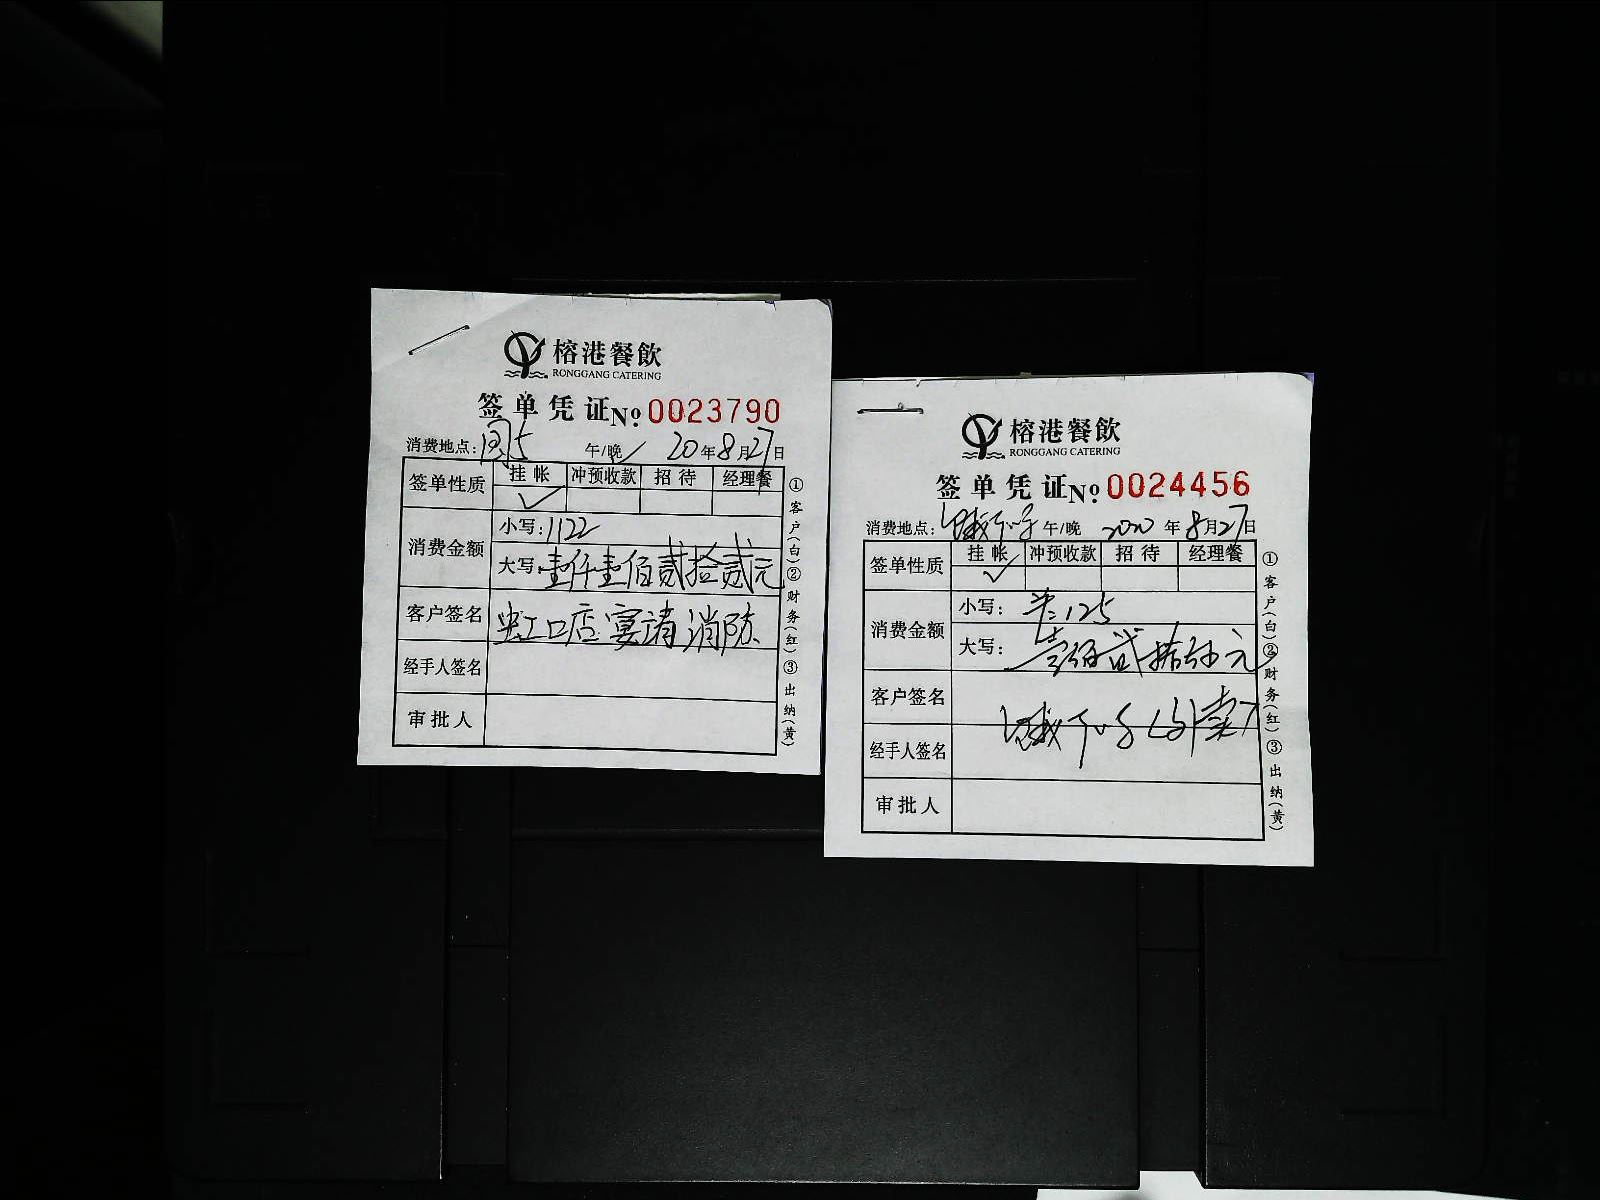 榕港餐飲
RONGGANG CATERING
签单凭证 No 0023790
消费地点: 午/晚 20年8月27日
签单性质 挂帐 冲预收款 招待 经理餐
✓
消费金额
小写: 1122
大写: 壹仟壹佰贰拾贰元
客户签名 虹口店宴请消防
经手人签名
审批人
①客户(白)②财务(红)③出纳(黄)
榕港餐飲
RONGGANG CATERING
签单凭证 No 0024456
消费地点: 午/晚 2020年8月27日
签单性质 挂帐 冲预收款 招待 经理餐
✓
消费金额
小写: 125
大写: 壹佰贰拾伍元
客户签名
经手人签名
审批人
①客户(白)②财务(红)③出纳(黄)